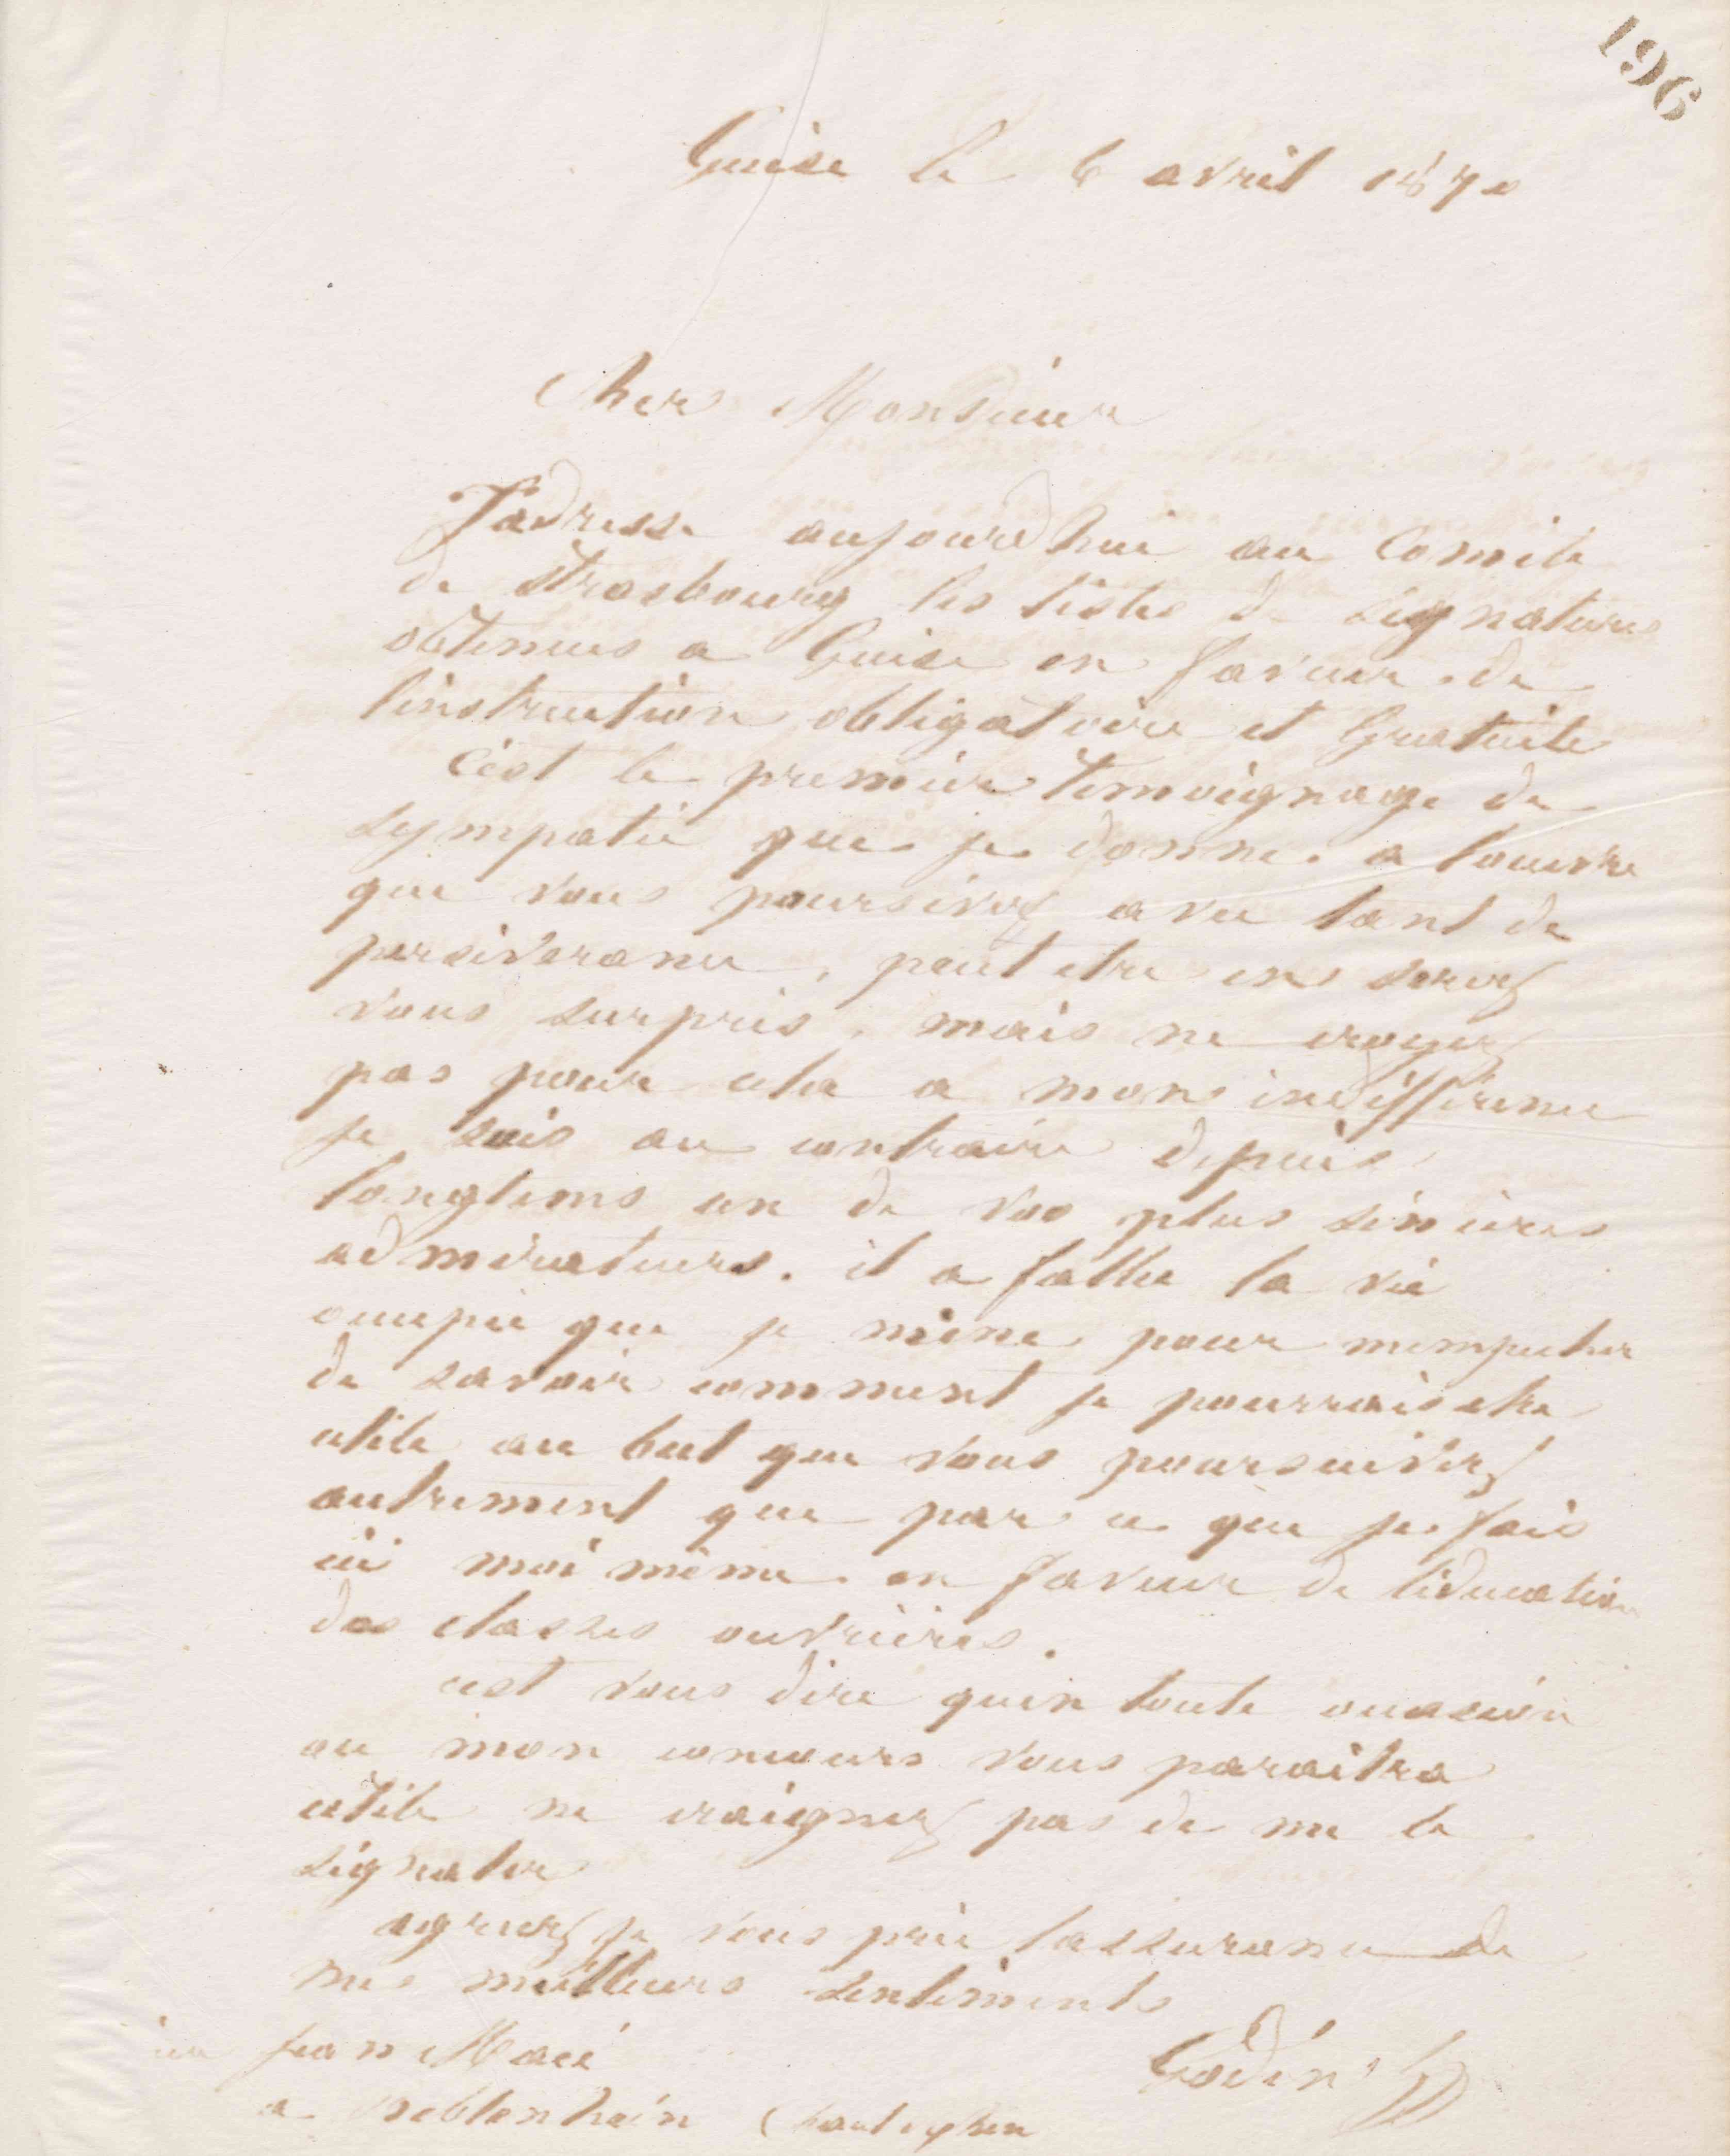 196
Guise le 6 avril 1870
Cher Monsieur
J'adresse aujourd'hui au Comité
de Strasbourg les listes de signatures
obtenues a Guise en faveur de
l'instruction obligatoire et Gratuite
C'est le premier temoignage de
sympatie que je donne a l'ouvre
que vous poursivez avec tant de
perseverance, peut etre en serez
vous surpris, mais ne croyez
pas pour cela a mon indifférence
je suis au contraire depuis
longtems un de vos plus sincères
admirateurs. il a fallu la vie
occupée que je mène pour mempecher
de savoir comment je pourrais etre
utile au but que vous poursuivez
autrement que par ce que je fais
ici moi même en faveur de léducation
des classes ouvrières.
cest vous dire quen toute occasion
ou mon concours vous paraitra
utile ne craignez pas de me le
signaler
agreez je vous prie lassurance de
mes meilleurs sentiments
Godin
Jean Macé
a Beblenheim (haut rhin